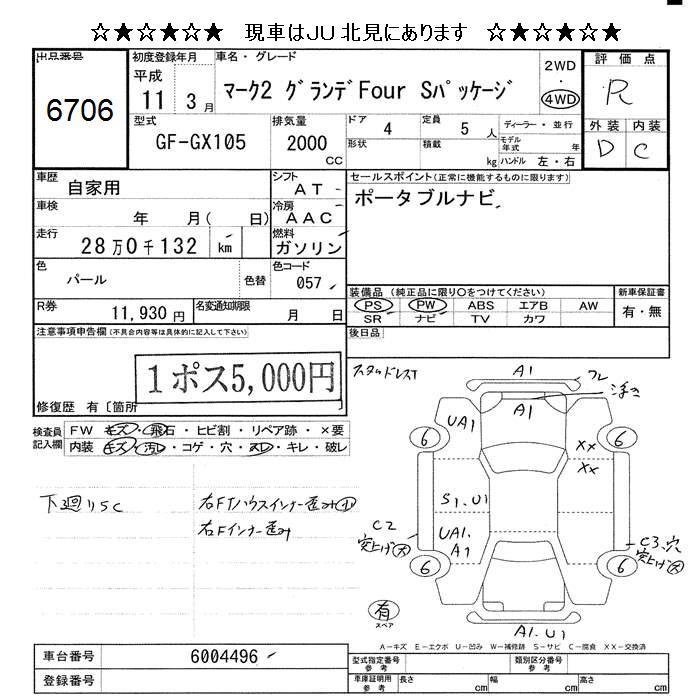 ☆★☆★☆★☆ 現車はJU北見にあります ☆★☆★☆★☆
出品番号 初度登録年月 車名・グレード 2WD 評価点
6706 平成 11年 3月 マーク2 グランデFour Sパッケージ ・ 4WD R
型式 排気量 ドア 4 定員 5人 ディーラー・並行 外装 内装
GF-GX105 2000 CC 形状 積載 kg モデル年式 年 ハンドル 左・右 D C
車歴 自家用 シフト AT セールスポイント(正常に機能するものに限ります)
車検 年 月( 日) 冷房 AAC ポータブルナビ
走行 28万0千132 km 燃料 ガソリン
色 パール 色替 色コード 057 装備品(純正品に限り○をつけてください) 新車保証書
R券 11,930円 名変通知期限 月 日 PS PW ABS エアB AW 有・無
SR ナビ TV カワ
注意事項申告欄(不具合内容等は具体的に記入して下さい) 後日品
1ポス5,000円
修復歴 有〔箇所
スタッドレスT A1 フレ
A1 浮き
検査員記入欄 FW キズ・飛石・ヒビ割・リペア跡・×要
内装 キズ・汚レ・コゲ・穴・スレ・キレ・破レ
UA1 6 6 XX XX
下廻りSC 右FTハウスインナー歪み大
右Fインナー歪み
S1.U1
C2 突上げ大 UA1. A1 C3.穴 突上げ大
6 6
有 スペア
A1.U1
A−キズ E−エクボ U−凹み W−補修跡 S−サビ C−腐食 XX−交換済
車台番号 6004496 型式指定番号 参考 類別区分番号 参考
登録番号 車庫証明用 参考 長さ cm 幅 cm 高さ cm